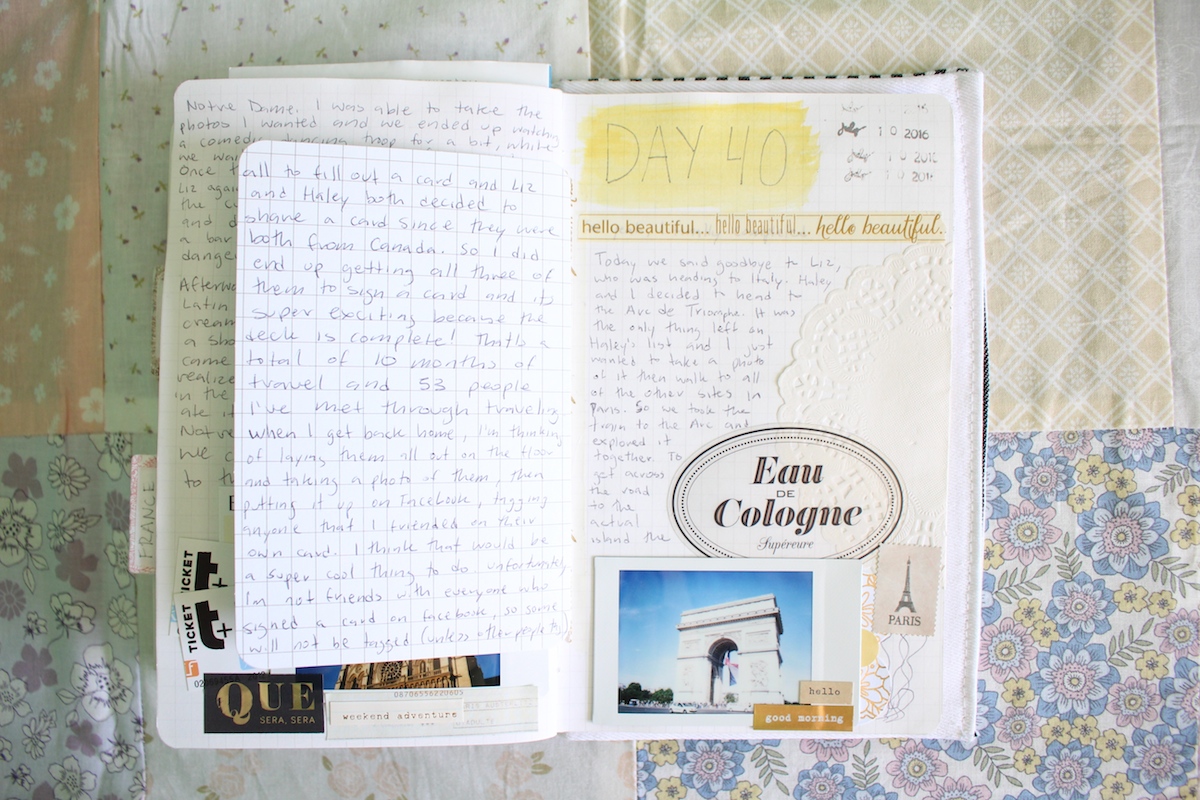 Notre Dame. I was able to take the
photos I wanted and we ended up watching
a comedy dancing troop for a bit, while
we
Once
Liz again
the
and
a bar
danger
Afterwa
Latin
cream
a sho
came
realize
in the
ate it
Notre
we
to th
all to fill out a card and Liz
and Haley both decided to
share a card since they were
both from Canada. So I did
end up getting all three of
them to sign a card and it's
super exciting because the
deck is complete! That's a
total of 10 months of
travel and 53 people
I've met through traveling.
When I get back home, I'm thinking
of laying them all out on the floor
and taking a photo of them, then
putting it up on Facebook, tagging
anyone that I friended on their
own card. I think that would be
a super cool thing to do unfortunately
I'm not friends with everyone who
signed a card on facebook, so some
will not be tagged (unless other people tag)
FRANCE
TICKET
t+
TICKET
t+
QUE
SERA, SERA
08706556220609
weekend adventure
DAY 40
10 2016
10 201
10 201
hello beautiful... hello beautiful... hello beautiful.
Today we said goodbye to Liz,
who was heading to Italy. Haley
and I decided to head to
the Arc de Triomphe. It was
the only thing left on
Haley's list and I just
wanted to take a photo
of it then walk to all
of the other sites in
Paris. So we took the
train to the Arc and
explored it
together. To
get across
the road
to the
actual
island the
Eau
DE
Cologne
Supéreure
PARIS
hello
good morning